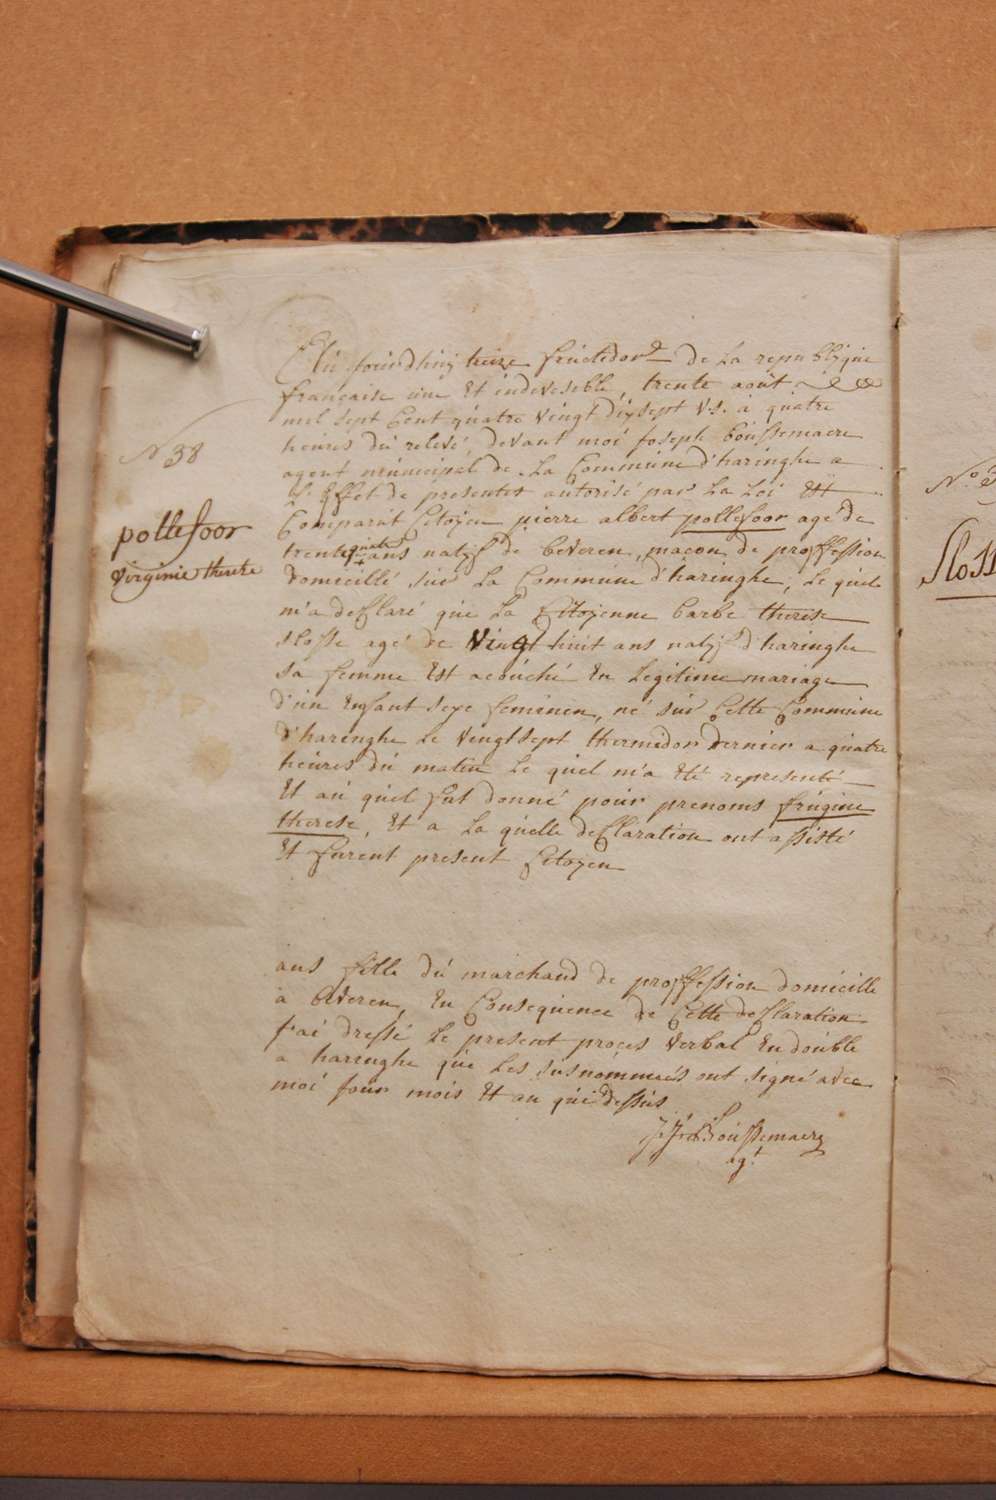 N° 38
pollefoor
virginie therese
Au jourdhuij treize fructidor de La republique
francaise une Et indeviseble, trente août
mil sept Cent quatre vingt dixsept v.s. à quatre
heures du relevé, devant moi joseph boussemaere
agent municipal de La Commune d'haringhe a
L'Effet de presentes autorisé par La Loi Est
Comparut Citoÿen pierre albert pollefoor agé de
trente quatre ans natif de beveren, maçon de proffession
Domicillé sur La Commune d'haringhe, Le quel
m'a desClaré que La Citoÿenne barbe therese
slosse agé de Vingt huit ans natif d'haringhe
sa femme Est acouché En Legitime mariage
d'un Enfant sexe feminen, né sur Cette Commune
d'haringhe Le Vingtsept thermidor dernier a quatre
heures du matin Le quel m'a Eté representé
Et au quel fut donné pour prenoms firigine
therese, Et a La quelle desClaration ont assisté
Et furent present Citoyen
ans fille du marchand de proffession domicille
a beveren, En Consequence de Cette desClaration
j'ai dressé Le present proces verbal En double
a haringhe que Les susnommés ont signé avec
moi jour mois Et an que dessus
J:J: Boussemaere
agt
N°
Sloss